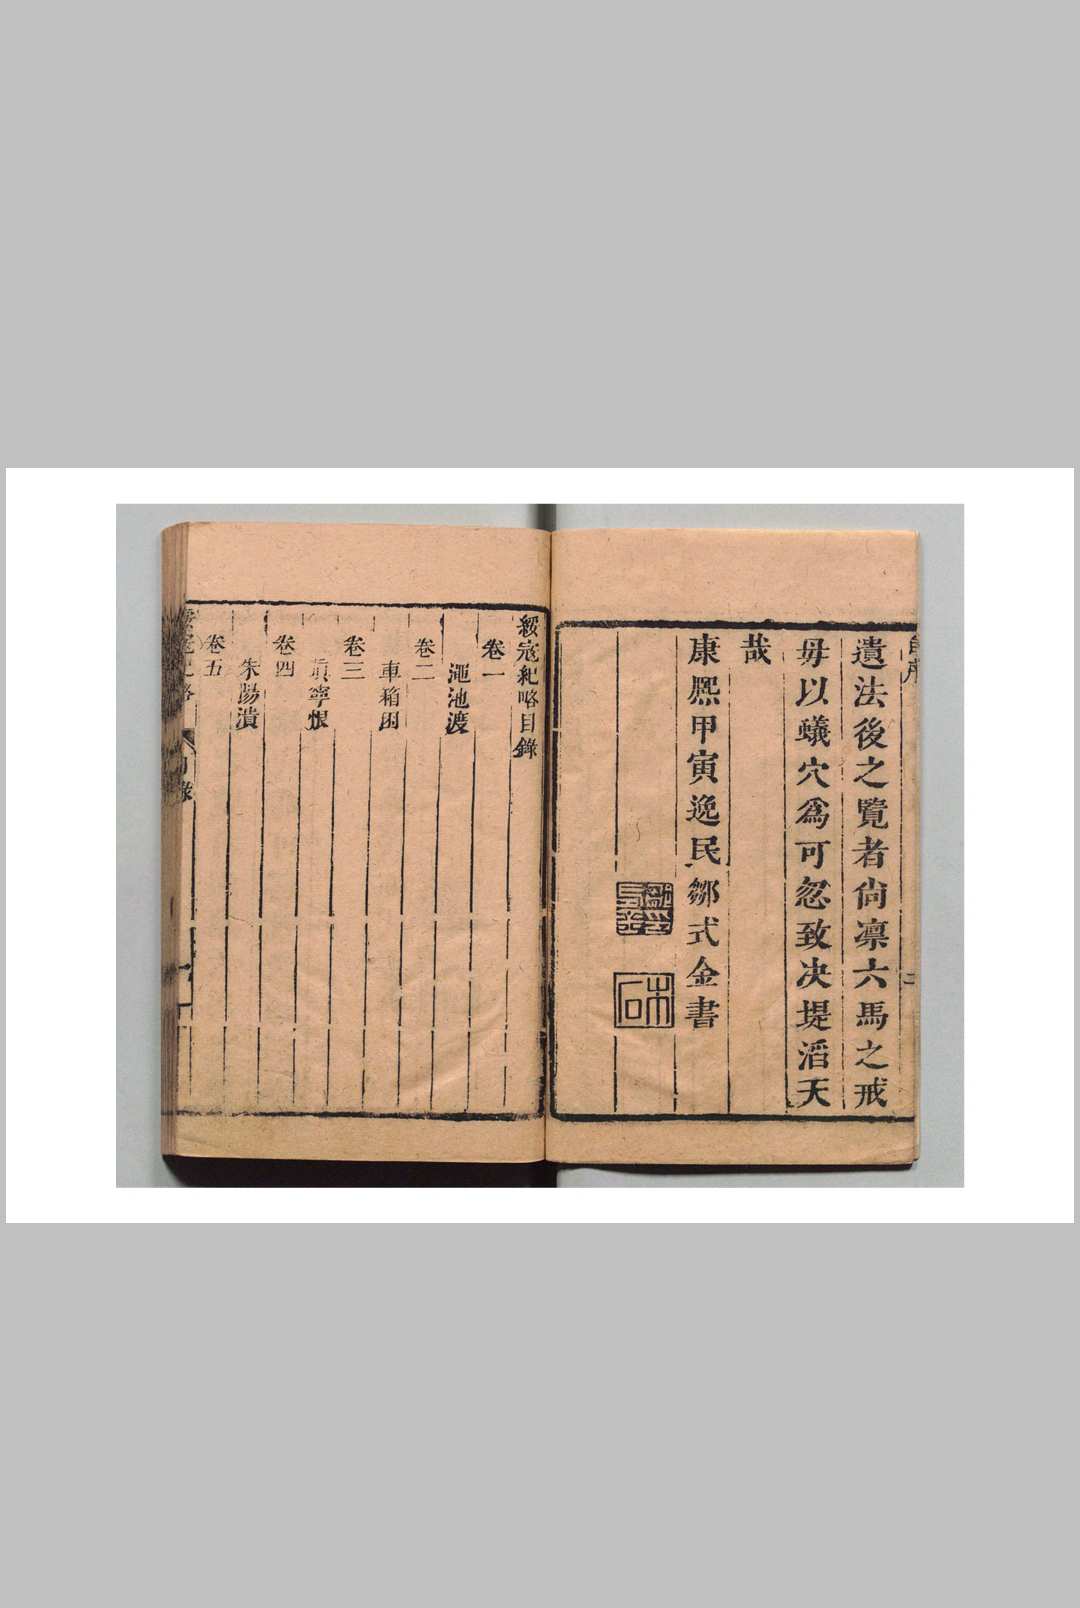 遺法後之覽者尙凛六馬之戒
毋以蟻穴爲可忽致决堤滔天
哉
康熙甲寅逸民鄒式金書
木石
綏寇紀略目錄
卷一
澠池渡
卷二
車箱困
卷三
眞寧恨
卷四
朱陽潰
卷五